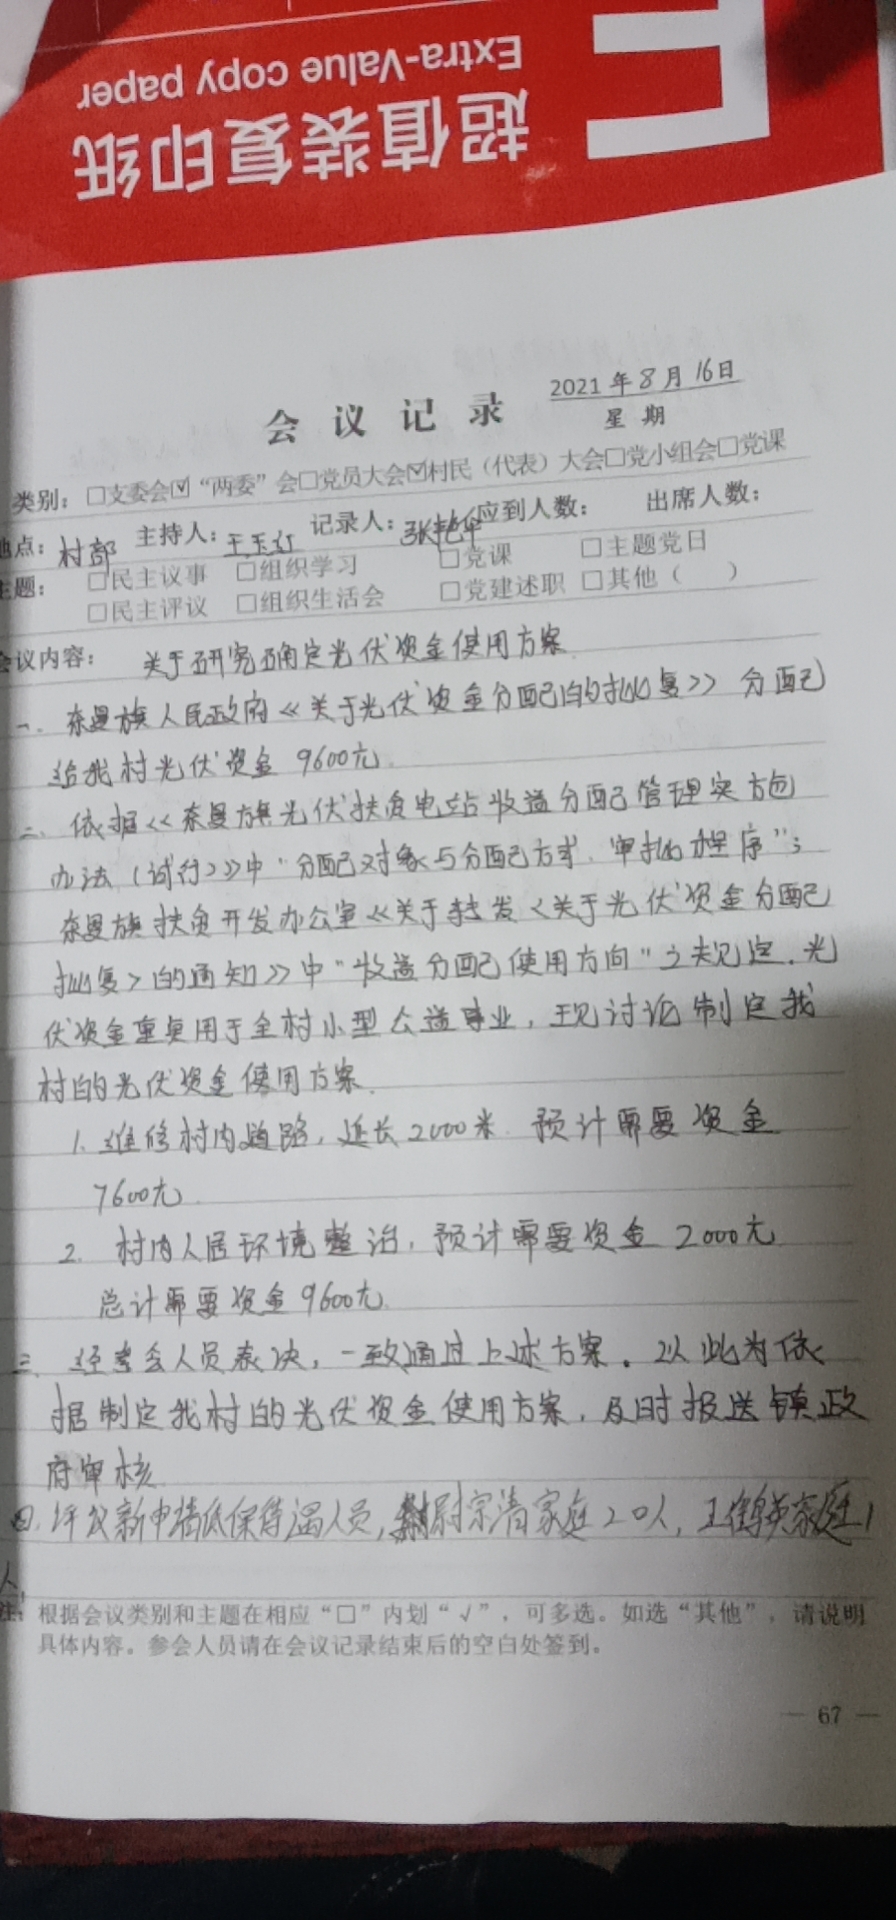 Extra-Value copy paper
超值装复印纸
2021年8月16日
会议记录
星期
类别：□支委会☑“两委”会□党员大会☑村民（代表）大会□党小组会□党课
地点：村部 主持人：王玉红 记录人：张艳华 应到人数： 出席人数：
主题： □民主议事 □组织学习 □党课 □主题党日
□民主评议 □组织生活会 □党建述职 □其他（ ）
会议内容： 关于研究确定光伏资金使用方案
一、奈曼旗人民政府《关于光伏资金分配的批复》分配
给我村光伏资金9600元
二、依据《奈曼旗光伏扶贫电站收益分配管理实施
办法（试行）》中“分配对象与分配方式、审批程序”；
奈曼旗扶贫开发办公室《关于转发〈关于光伏资金分配
批复〉的通知》中“收益分配使用方向”之规定，光
伏资金重点用于全村小型公益事业，现讨论制定我
村的光伏资金使用方案
1. 维修村内道路，延长2000米 预计需要资金
7600元
2. 村内人居环境整治，预计需要资金2000元
总计需要资金9600元
三、经参会人员表决，一致通过上述方案。以此为依
据制定我村的光伏资金使用方案，及时报送镇政
府审核
四、评议新申请低保待遇人员，尉宗清家庭2口人，王鹤英家庭1
人，
注：根据会议类别和主题在相应“□”内划“√”，可多选。如选“其他”，请说明
具体内容。参会人员请在会议记录结束后的空白处签到。
— 67 —